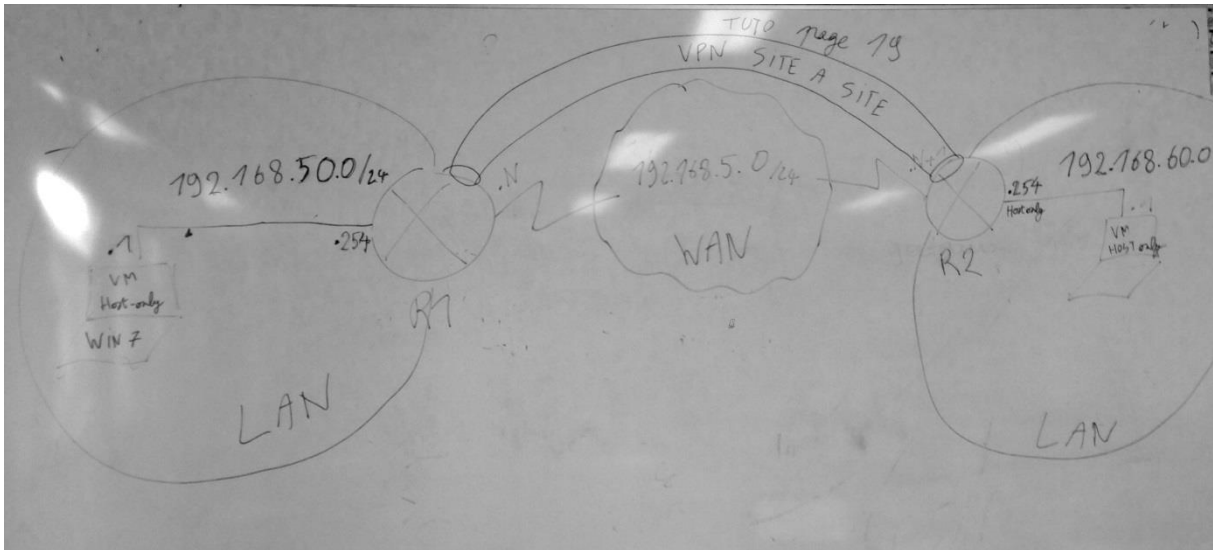 TUTO page 19
VPN SITE A SITE
192.168.50.0/24
.254
.1
VM
Host-only
WIN 7
R1
LAN
.N
192.168.5.0/24
WAN
.N+1
R2
.254
Host only
192.168.60.0
.1
VM
Host only
LAN